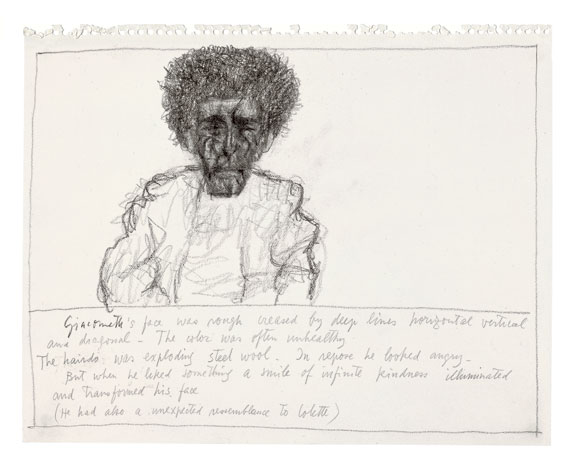 Giacometti's face was rough creased by deep lines horizontal vertical
and diagonal – The color was often unhealthy
The hairdo was exploding steel wool. In repose he looked angry –
But when he liked something a smile of infinite kindness illuminated
and transformed his face
(He had also a unexpected resemblance to Colette)